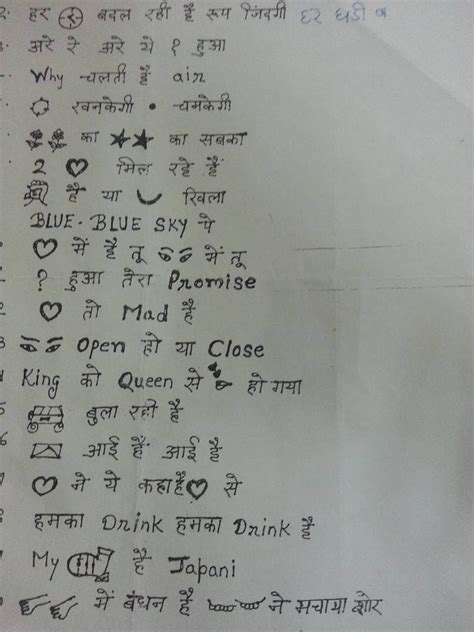 २. हर बदल रही है रूप जिंदगी
अरे रे अरे ये १ हुआ
Why चलती है air
खनकेगी • चमकेगी
का का सबका
2 मिल रहे हैं
है या खिला
BLUE - BLUE SKY पे
में है तू में तू
? हुआ तेरा Promise
तो Mad है
Open हो या Close
King को Queen से हो गया
बुला रही है
आई हैं आई है
ने ये कहा है से
हमका Drink हमका Drink है
My है Japani
में बंधन है ने मचाया शोर